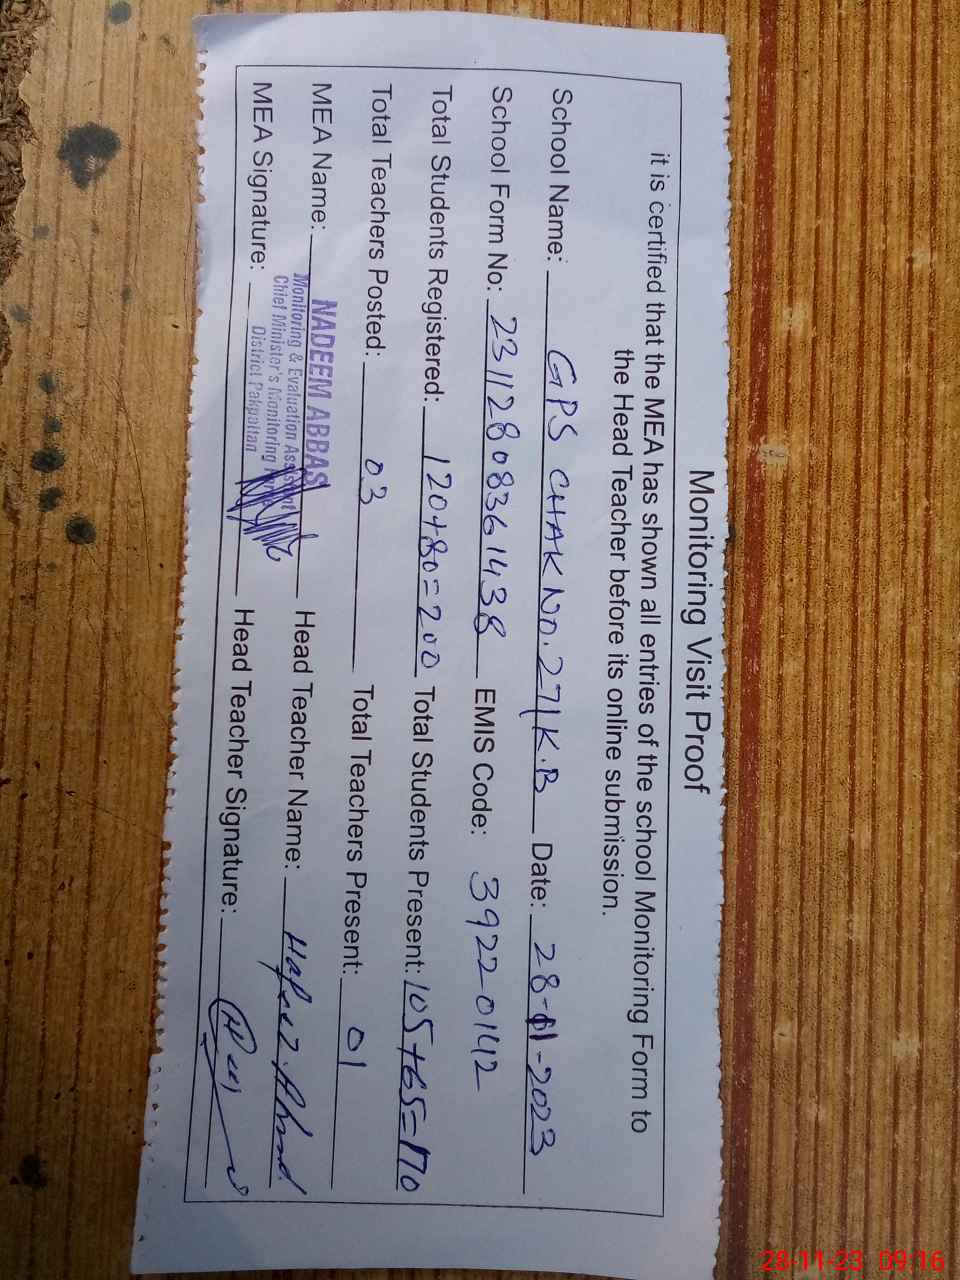 Monitoring Visit Proof
it is certified that the MEA has shown all entries of the school Monitoring Form to
the Head Teacher before its online submission.
School Name: GPS CHAK NO. 271K.B Date: 28-11-2023
School Form No: 23112808361438 EMIS Code: 39220142
Total Students Registered: 120+80=200 Total Students Present: 105+65=170
Total Teachers Posted: 03 Total Teachers Present: 01
MEA Name: NADEEM ABBAS Head Teacher Name: Hafeez Ahmad
Monitoring & Evaluation Assistant
Chief Minister's Monitoring
District Pakpattan
MEA Signature: Head Teacher Signature:
28-11-23 09:16